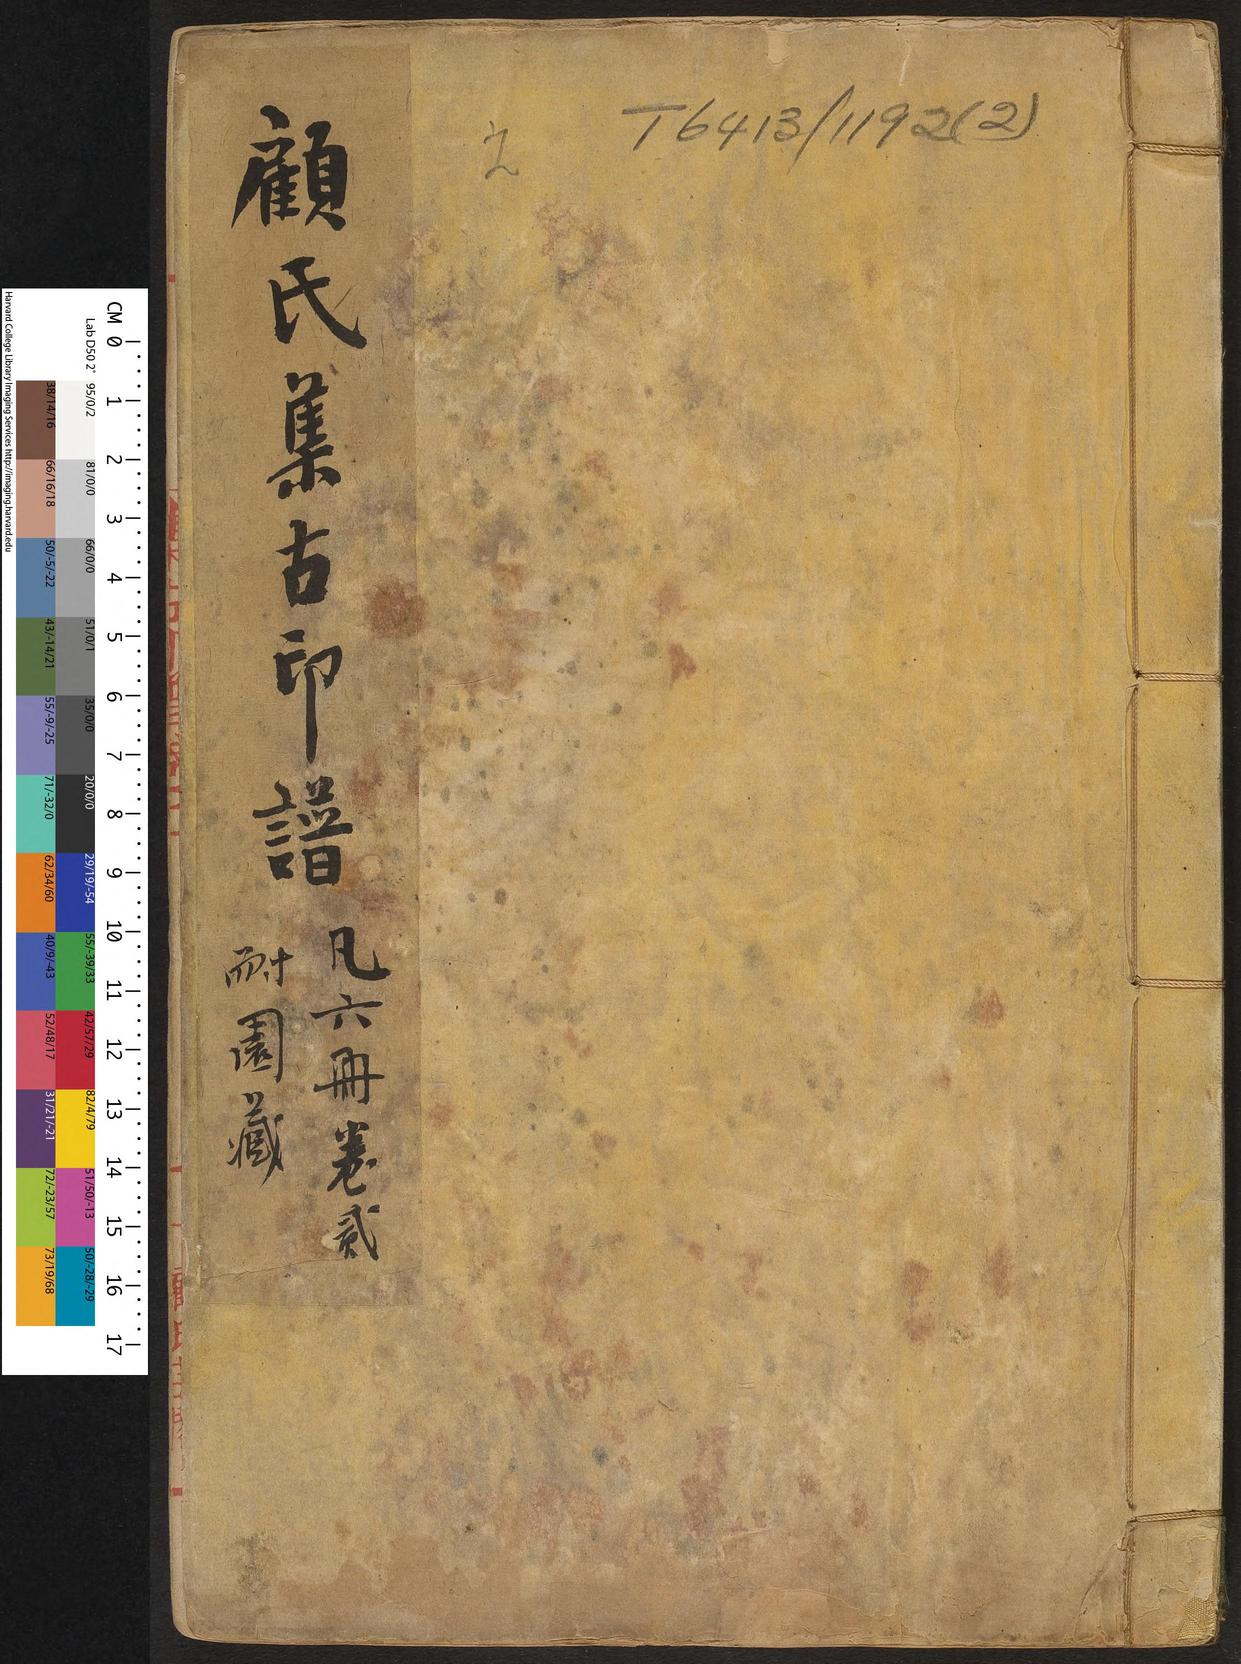 T6413/1192(2)
顧氏集古印譜
凡六冊卷貳
耐園藏
Harvard College Library Imaging Services http://imaging.harvard.edu
Lab D50 2°
CM 0 1 2 3 4 5 6 7 8 9 10 11 12 13 14 15 16 17
95/0/2 81/0/0 66/0/0 51/0/1 35/0/0 20/0/0 29/19/-54 55/-39/33 42/57/29 82/4/79 51/50/-13 50/-28/-29
38/14/16 66/16/18 50/-5/-22 43/-14/21 55/-9/-25 71/-32/0 62/34/60 40/9/-43 52/48/17 31/21/-21 72/-23/57 73/19/68